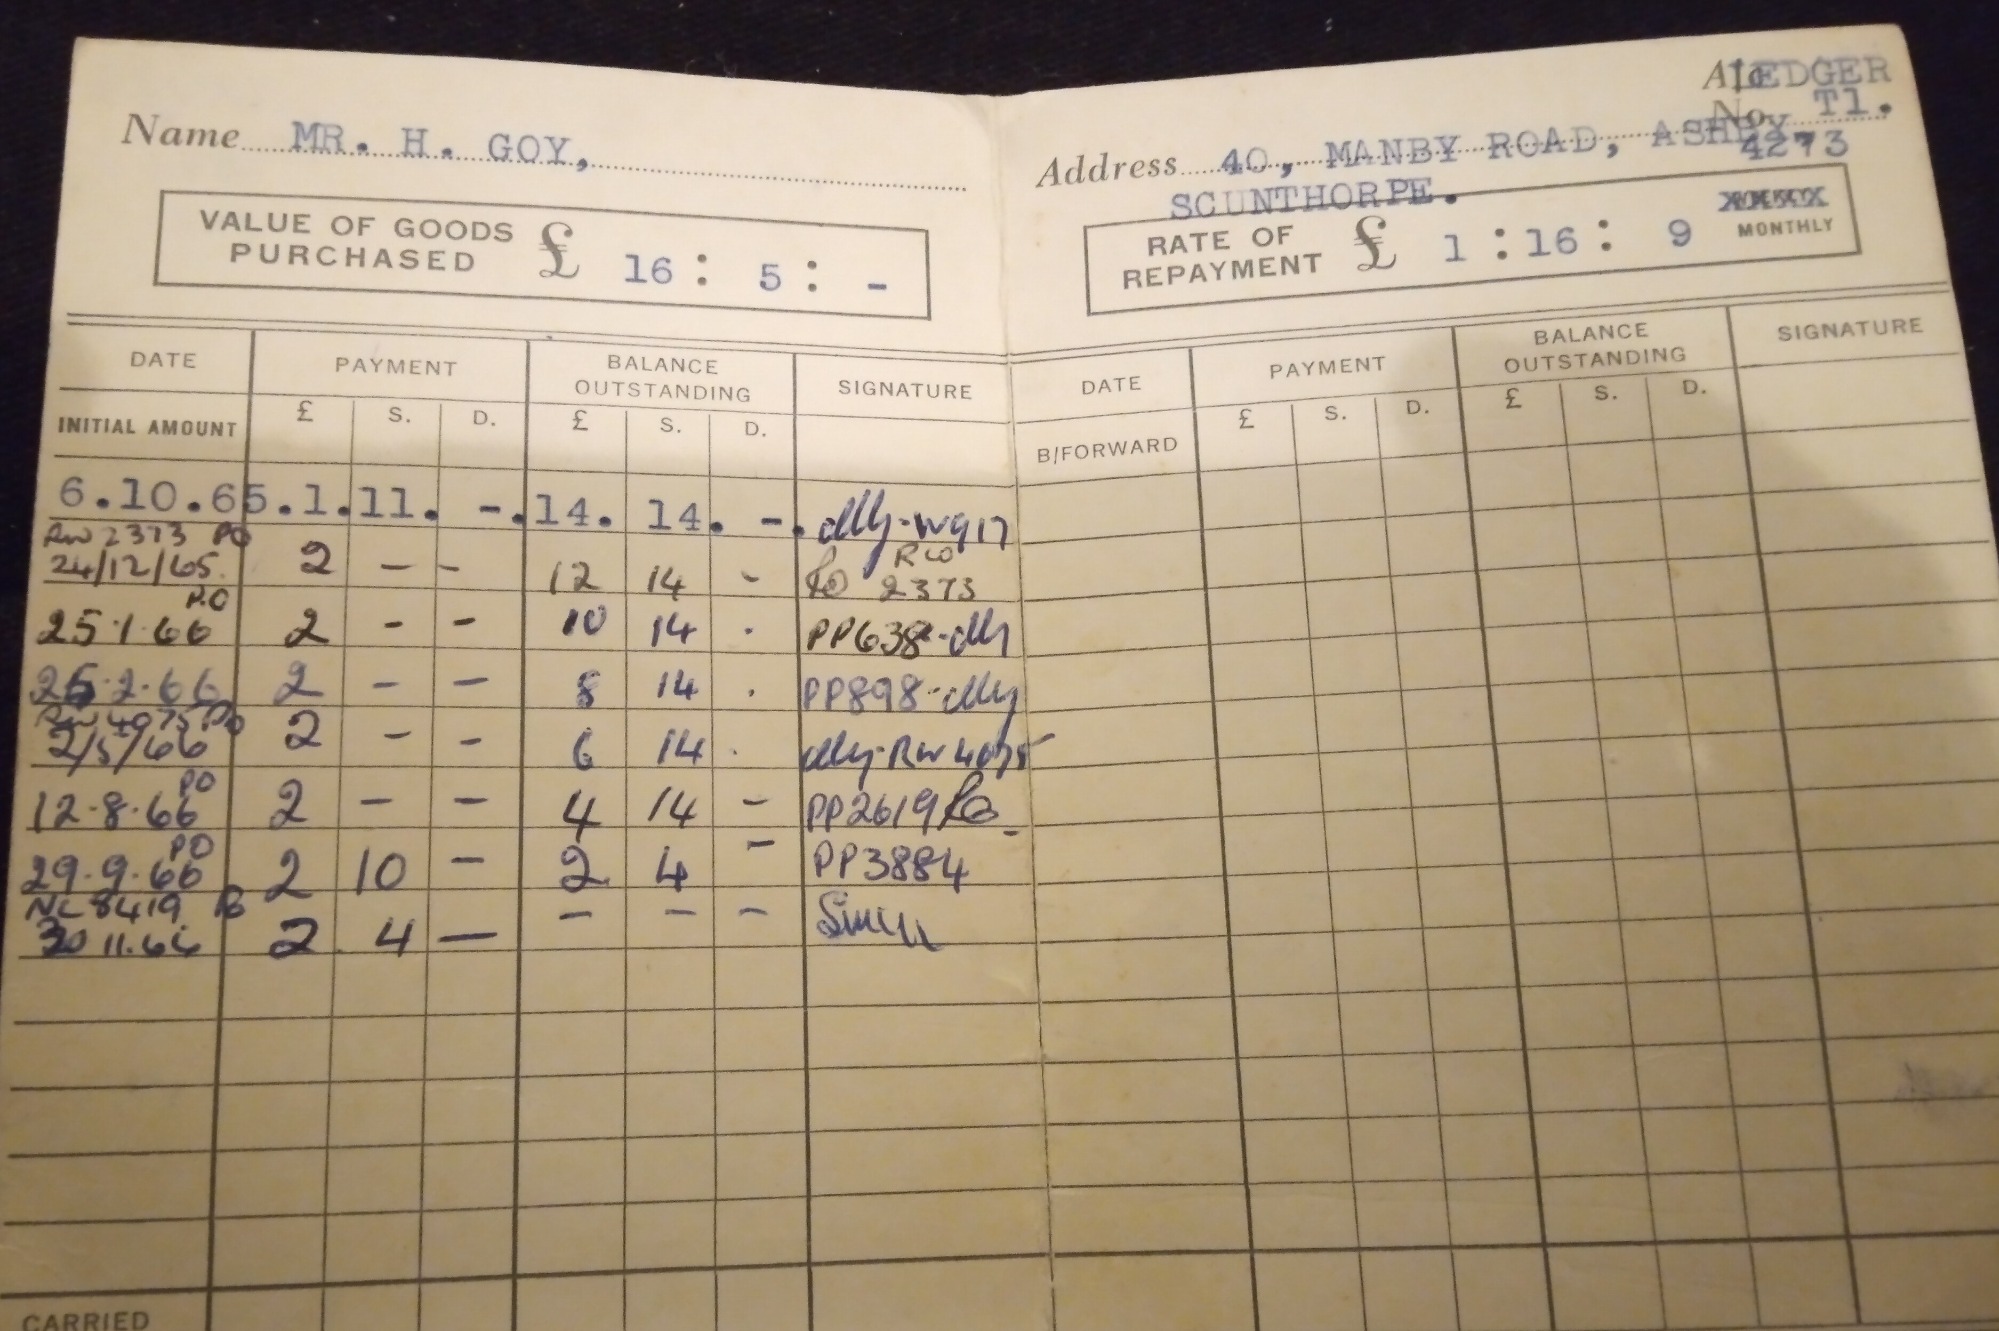 A/c LEDGER
No. T1.
4273
Name MR. H. GOY,
Address 40, MANBY ROAD, ASHBY
SCUNTHORPE.
VALUE OF GOODS PURCHASED £ 16 : 5 : -
RATE OF REPAYMENT £ 1 : 16 : 9 MONTHLY
DATE PAYMENT BALANCE OUTSTANDING SIGNATURE
INITIAL AMOUNT £ S. D. £ S. D.
6.10.65.1.11. -.14. 14. -.
RW 2373 PO
24/12/65. 2 - - 12 14 - RW 2373
PO
25.1.66 2 - - 10 14 . PP638
25.2.66 2 - - 8 14 . PP898
RW 4075 PO
2/5/66 2 - - 6 14 . RW 4075
PO
12.8.66 2 - - 4 14 - PP2619
PO
29.9.66 2 10 - 2 4 - PP3884
NL 8419 PO
30 11.66 2 4 - - - -
CARRIED
DATE PAYMENT BALANCE OUTSTANDING SIGNATURE
B/FORWARD £ S. D. £ S. D.